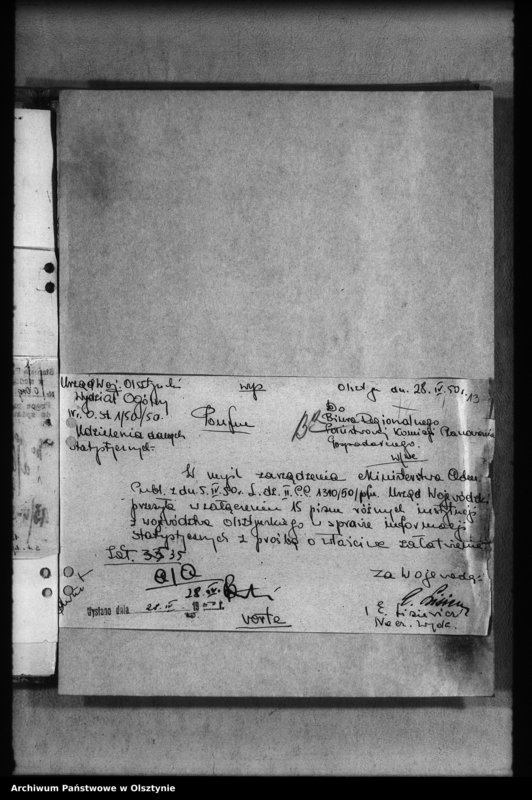 Urząd Woj. Olsztyński
Wydział Ogólny
Nr. O. St 1/50/50.
Udzielenia danych
statystycznych.
wyp
Olsztyn dn. 28. IV. 50.
13
Poufne
Do
Biura Regionalnego
Państwowej Komisji Planowania
Gospodarczego.
w/m
W myśl zarządzenia Ministerstwa Adm.
Publ. z dn. 5. IV. 50r. L. dz. II. PP 1310/50/pfn. Urząd Wojewódzki
przesyła w załączeniu 15 pism różnych instytucji
z województwa Olsztyńskiego w sprawie informacji
statystycznych z prośbą o właściwe załatwienie
Zał. 35
28. IV.
Wysłano dnia 28. IV 19
verte
Za Wojewodę
E. Lisiewicz
Nacz. Wydz.
Archiwum Państwowe w Olsztynie